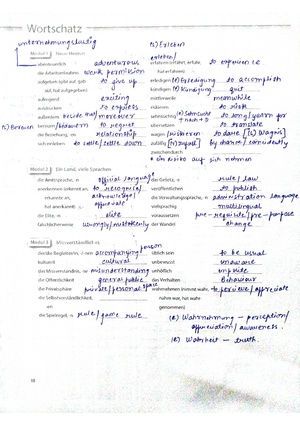 Wortschatz
unternehmungslustig
(r) Erleben
Modul 1 Neue Heimat
erleben/
abenteuerlich adventurous
erfahren, erfährt, erfuhr, to experience
die Arbeitserlaubnis work permission
hat erfahren
aufgeben (gibt auf, gab to give up
erledigen (e) Erledigung to accomplish
auf, hat aufgegeben)
kündigen (e) Kündigung quit
aufregend exciting
mittlerweile meanwhile
ausdrücken to express
riskieren to risk
außerdem beside that/moreover
sehnsüchtig (e) Sehnsucht to long/yearn for
(s) Bereuen bereuen to regret
übersetzen to translate
die Beziehung, -en relationship
wagen to dare [(s) Wagnis]
sich einleben to settle/settle down
zufällig by chance/
zwischendurch
* ein Risiko auf sich nehmen
Modul 2 Ein Land, viele Sprachen
die Amtssprache, -n official language
das Gesetz, -e rule/law
anerkennen (erkennt an, to recognise/
veröffentlichen to publish
erkannte an, acknowledge/
die Verwaltungssprache, -n administration language
hat anerkannt) appreciate
vielsprachig multilingual
die Elite, -n elite
voraussetzen
fälschlicherweise wrongly/mistakenly
der Wandel change
Modul 3 Missverständliches
der/die Begleiter/in accompanying person
üblich sein to be usual
kulturell cultural
unbewusst unaware
das Missverständnis, -se misunderstanding
unhöflich impolite
die Öffentlichkeit general public
das Verhalten Behaviour
die Privatsphäre private/personal space
wahrnehmen (nimmt wahr, to perceive/appreciate
die Selbstverständlichkeit,
nahm wahr, hat wahr-
-en
genommen)
die Spielregel, -n rule/game rule
(e) Wahrnehmung – perception/
appreciation/awareness.
(e) Wahrheit – truth.